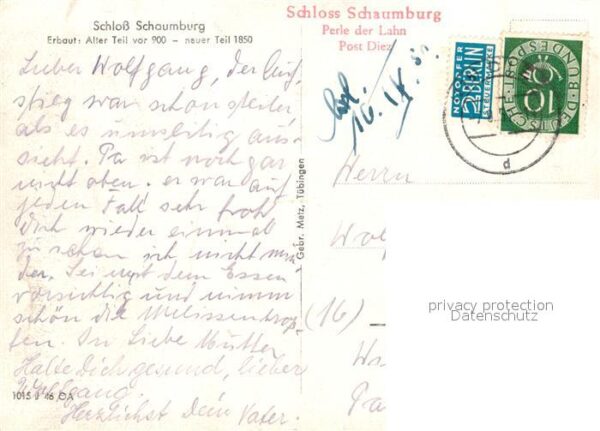 Schloß Schaumburg
Erbaut: Alter Teil vor 900 – neuer Teil 1850
Lieber Wolfgang, der Auf-
stieg war schon steiler
als es umseitig aus-
sieht. Pa ist noch gar
nicht oben. er war auf
jeden Fall sehr froh
Dich wieder einmal
zu sehen ich nicht min-
der. Sei mit dem Essen
vorsichtig und nimm
schön die Melissentrop-
fen. In Liebe Mutter
Halte Dich gesund, lieber
Wolfgang.
Herzlichst Dein Vater.
1015 J 46 CA
Gebr. Metz, Tübingen
Schloss Schaumburg
Perle der Lahn
Post Diez
16. IX.
NOTOPFER
2 BERLIN
STEUERMARKE
DEUTSCHE BUNDESPOST
10
d
Herrn
Wol
(16)
privacy protection
Datenschutz